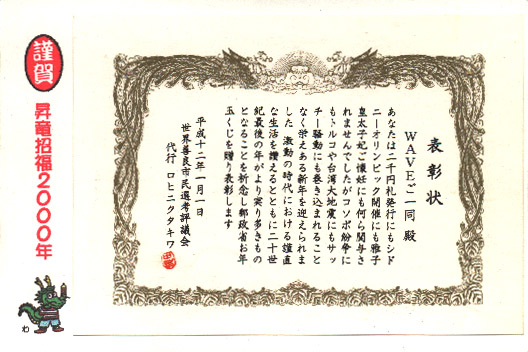 謹賀
昇竜招福2000年
表彰状
WAVEご一同 殿
あなたは二千円札発行にもシド
ニーオリンピック開催にも雅子
皇太子妃ご懐妊にも何ら関与さ
れませんでしたがコソボ紛争に
もトルコや台湾大地震にもサッ
チー騒動にも巻き込まれること
なく栄えある新年を迎えられま
した 激動の時代における謹直
な生活を讃えるとともに二十世
紀最後の年がより実り多きもの
となることを祈念し郵政省お年
玉くじを贈り表彰します
平成十二年一月一日
世界善良市民選考評議会
代行 ロヒニクタキワ
わ